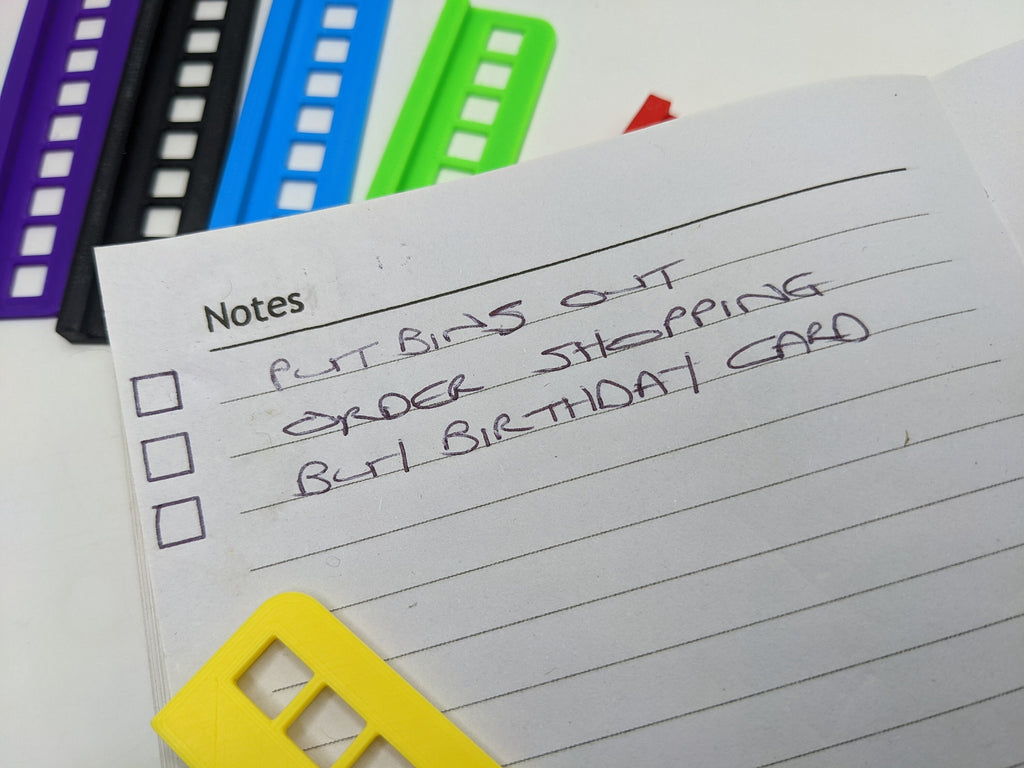 Notes
PUT BINS OUT
ORDER SHOPPING
BUY BIRTHDAY CARD